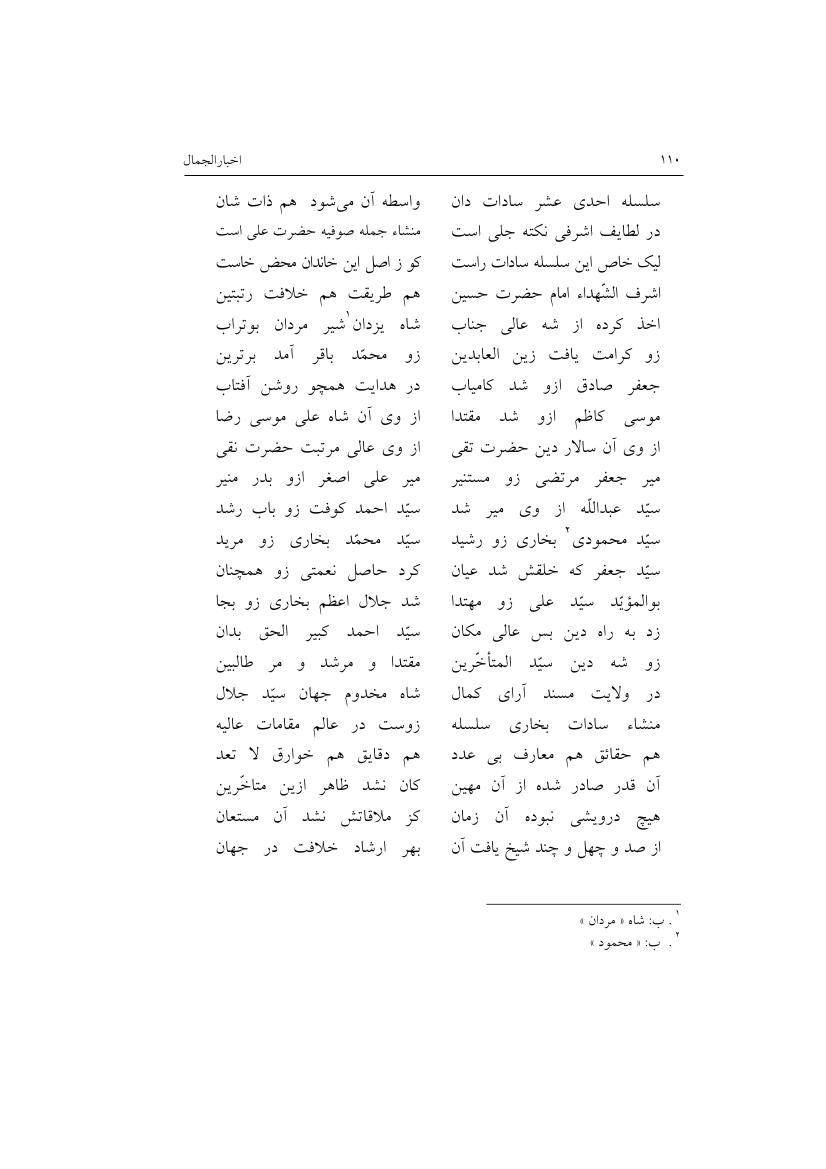 ۱۱۰ اخبارالجمال
سلسله احدی عشر سادات دان واسطه آن می‌شود هم ذات شان
در لطایف اشرفی نکته جلی است منشاء جمله صوفیه حضرت علی است
لیک خاص این سلسله سادات راست کو ز اصل این خاندان محض خاست
اشرف الشّهداء امام حضرت حسین هم طریقت هم خلافت رتبتین
اخذ کرده از شه عالی جناب شاه یزدان۱شیر مردان بوتراب
زو کرامت یافت زین العابدین زو محمّد باقر آمد برترین
جعفر صادق ازو شد کامیاب در هدایت همچو روشن آفتاب
موسی کاظم ازو شد مقتدا از وی آن شاه علی موسی رضا
از وی آن سالار دین حضرت تقی از وی عالی مرتبت حضرت نقی
میر جعفر مرتضی زو مستنیر میر علی اصغر ازو بدر منیر
سیّد عبداللّه از وی میر شد سیّد احمد کوفت زو باب رشد
سیّد محمودی۲ بخاری زو رشید سیّد محمّد بخاری زو مرید
سیّد جعفر که خلقش شد عیان کرد حاصل نعمتی زو همچنان
بوالمؤیّد سیّد علی زو مهتدا شد جلال اعظم بخاری زو بجا
زد به راه دین بس عالی مکان سیّد احمد کبیر الحق بدان
زو شه دین سیّد المتأخّرین مقتدا و مرشد و مر طالبین
در ولایت مسند آرای کمال شاه مخدوم جهان سیّد جلال
منشاء سادات بخاری سلسله زوست در عالم مقامات عالیه
هم حقائق هم معارف بی عدد هم دقایق هم خوارق لا تعد
آن قدر صادر شده از آن مهین کان نشد ظاهر ازین متاخّرین
هیچ درویشی نبوده آن زمان کز ملاقاتش نشد آن مستعان
از صد و چهل و چند شیخ یافت آن بهر ارشاد خلافت در جهان
۱. ب: شاه « مردان »
۲. ب: « محمود »